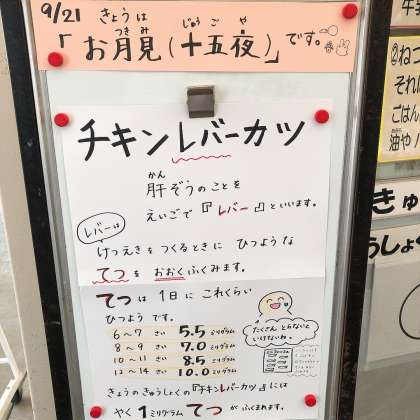 9/21 きょうは
「お月見(十五夜)」です。
つきみ じゅう ご や
チキンレバーカツ
かん
肝ぞうのことを
えいごで『レバー』といいます。
レバーは
けつえきをつくるときに ひつような
てつを おおくふくみます。
てつは 1日に これくらい
ひつよう です。
6〜7 さい 5.5 ミリグラム
8〜9 さい 7.0 ミリグラム
10〜11 さい 8.5 ミリグラム
12〜14 さい 10.0 ミリグラム
たくさん とらないと
いけないわ。
きょうのきゅうしょくの『チキンレバーカツ』には
やく 1ミリグラム てつ が ふくまれます。
牛
②ねつ
それに
ごはん
油や
きゅ
うしょ